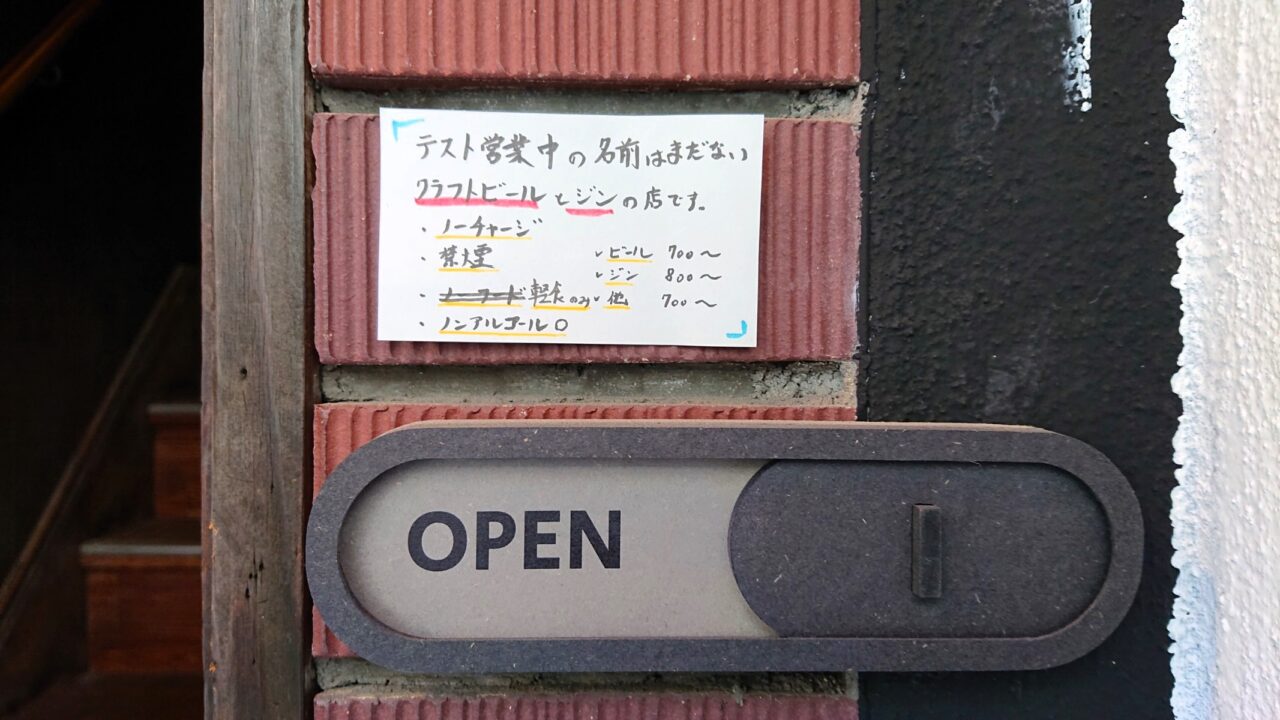 テスト営業中の名前はまだない
クラフトビールとジンの店です。
・ノーチャージ
・禁煙
・ノーフード 軽食のみ
・ノンアルコール○
・ビール 700〜
・ジン 800〜
・他 700〜
OPEN